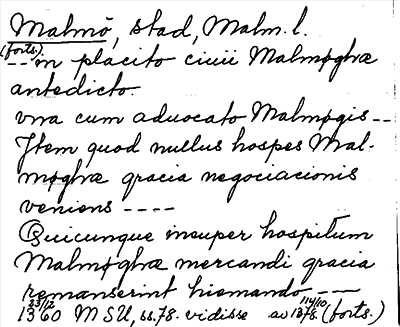 Malmö, stad, Malm. l.
(forts.)
-- in placito ciuii Malmøghæ
antedicto.
vna cum aduocato Malmøgis --
Item quod nullus hospes Mal-
møghæ gracia negociacionis
veniens ----
Quicunque insuper hospitum
Malmøghæ mercandi gracia
remanserint hiemando ---
23/12 114/10
1360 MSU, ss.78. vidisse av 1378. (forts.)